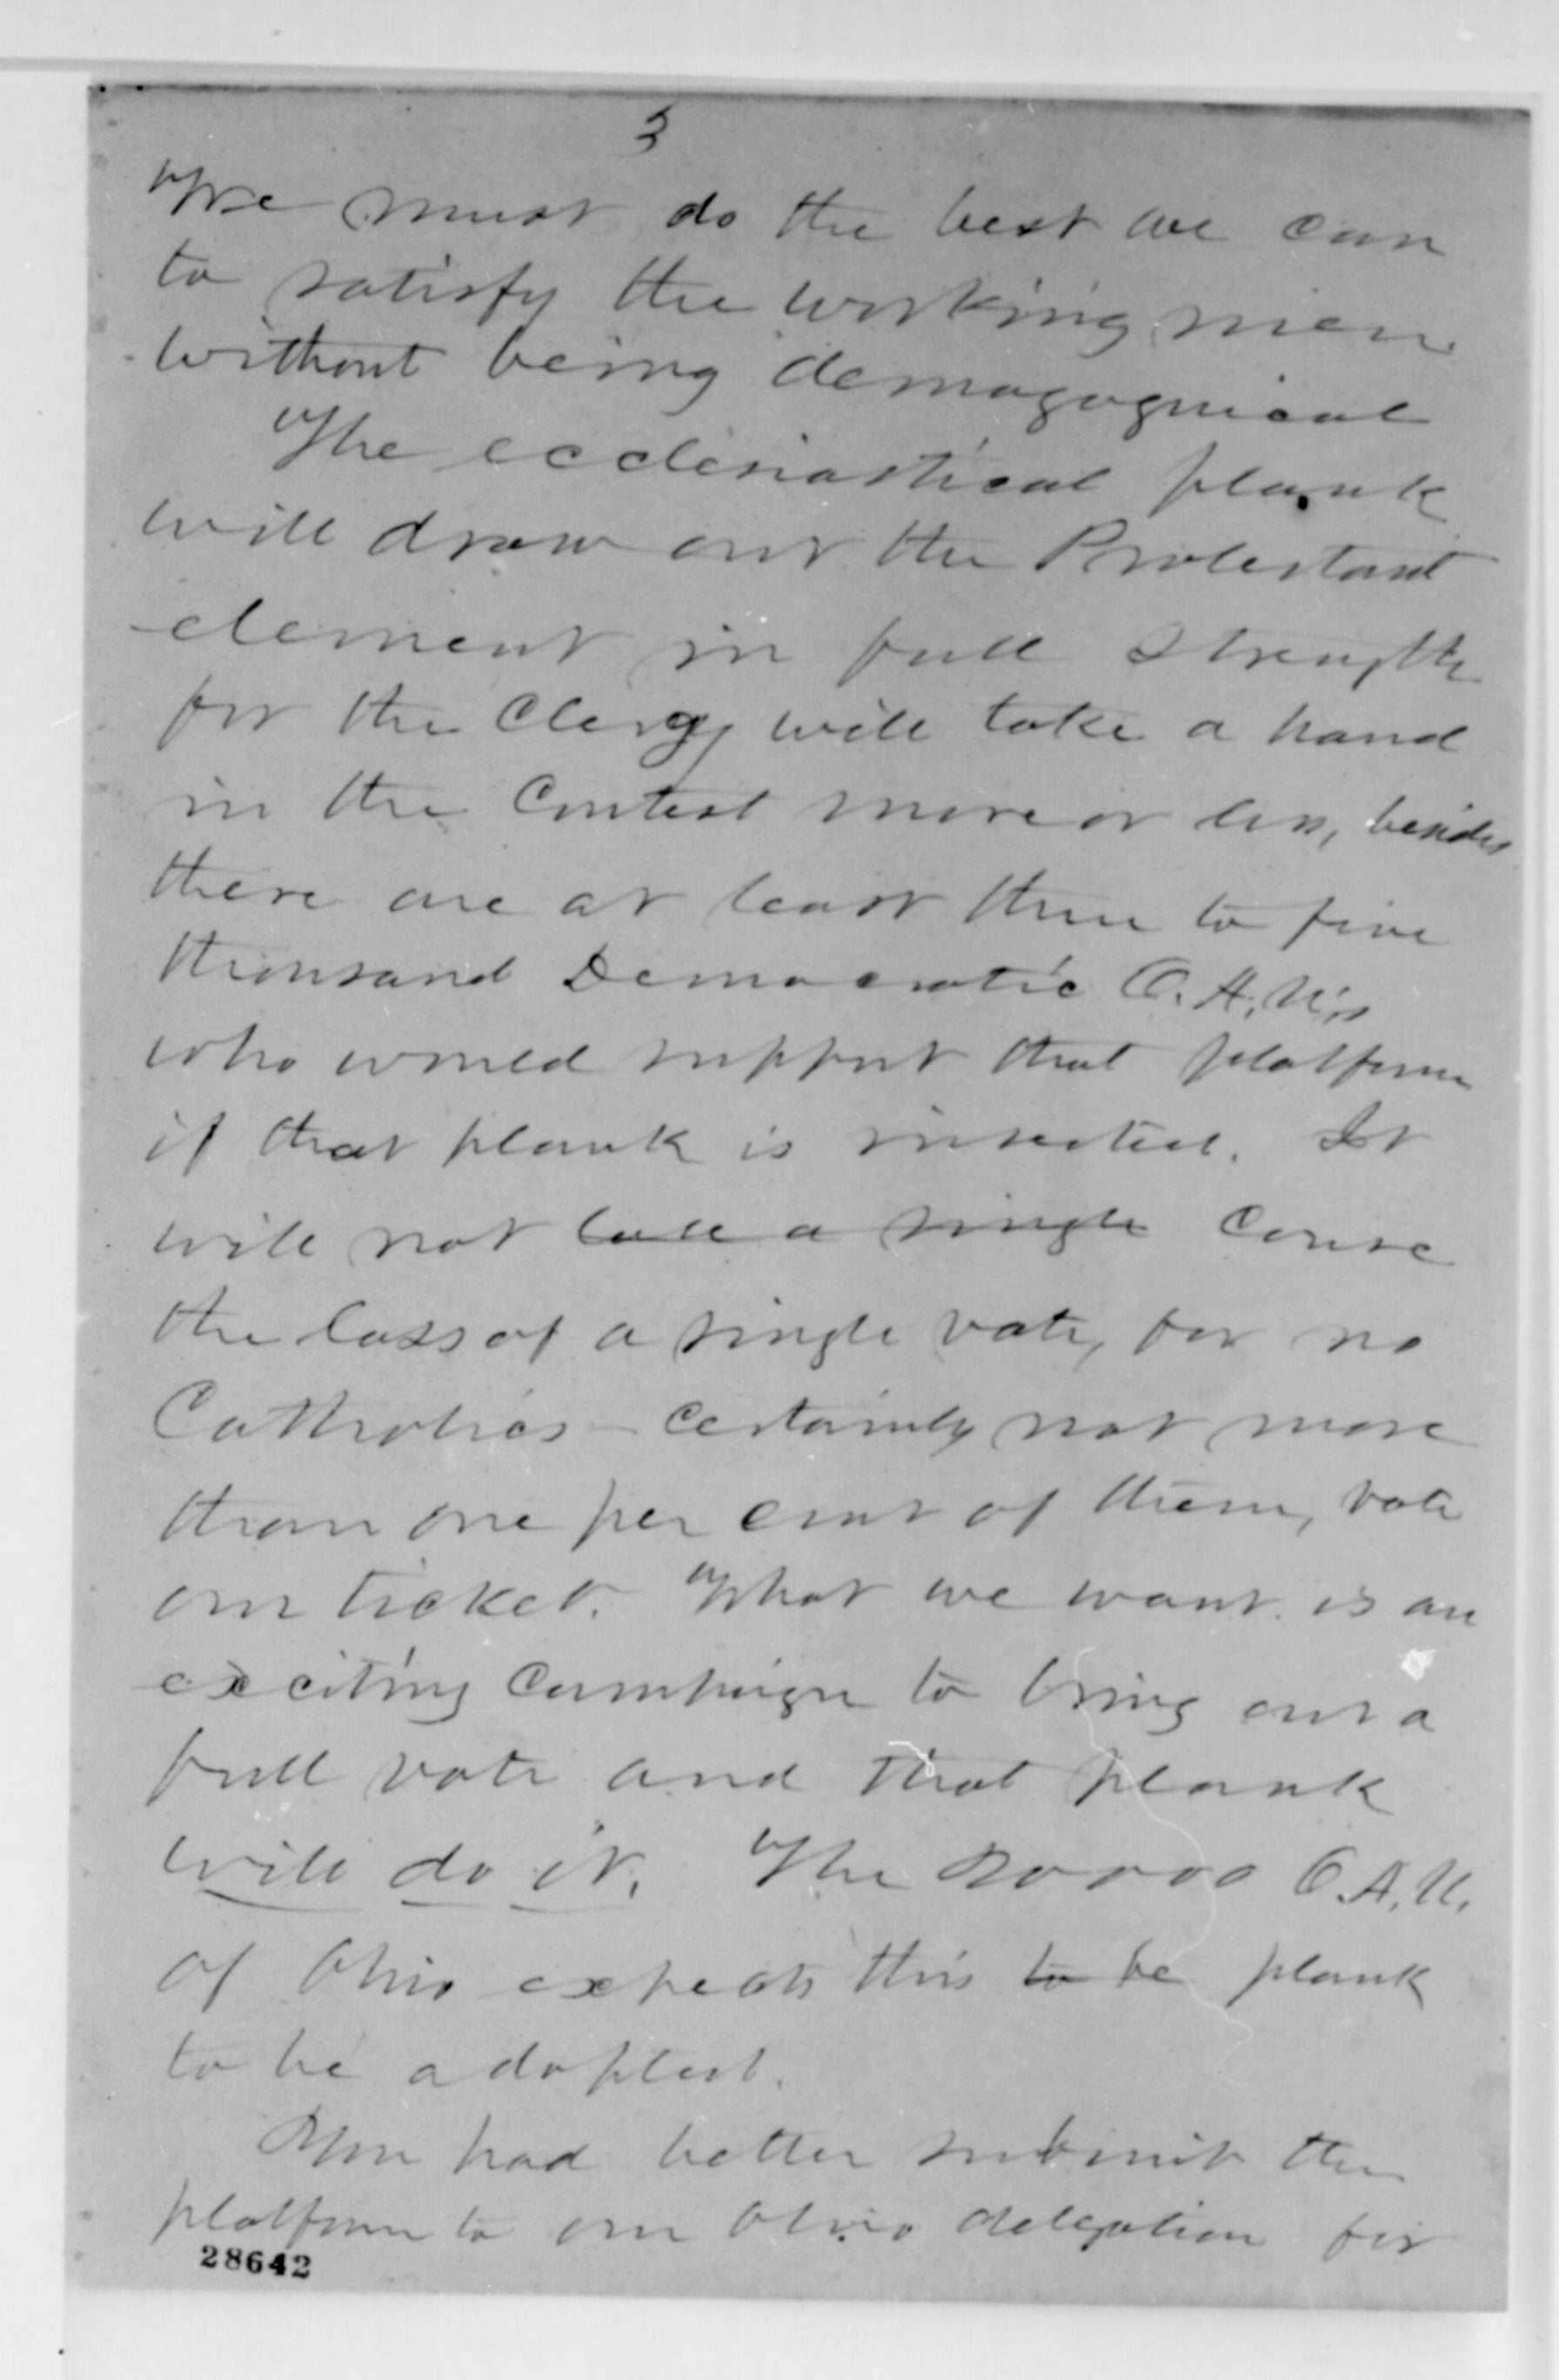 3
We must do the best we can
to satisfy the working men
without being demagogical
The ecclesiastical plank
will draw out the Protestant
element in full strength
for the Clergy will take a hand
in the Contest more or less, besides
there are at least three to five
thousand Democratic O.A.U.s
who would support that platform
if that plank is inserted. It
will not lose a single cause
the loss of a single vote, for no
Catholics – certainly not more
than one per cent of them, vote
our ticket. What we want is an
exciting Campaign to bring out a
full vote and that plank
will do it. The 20000 O.A.U.
of Ohio expects this to be plank
to be adopted.
You had better submit the
platform to our Ohio delegation for
28642